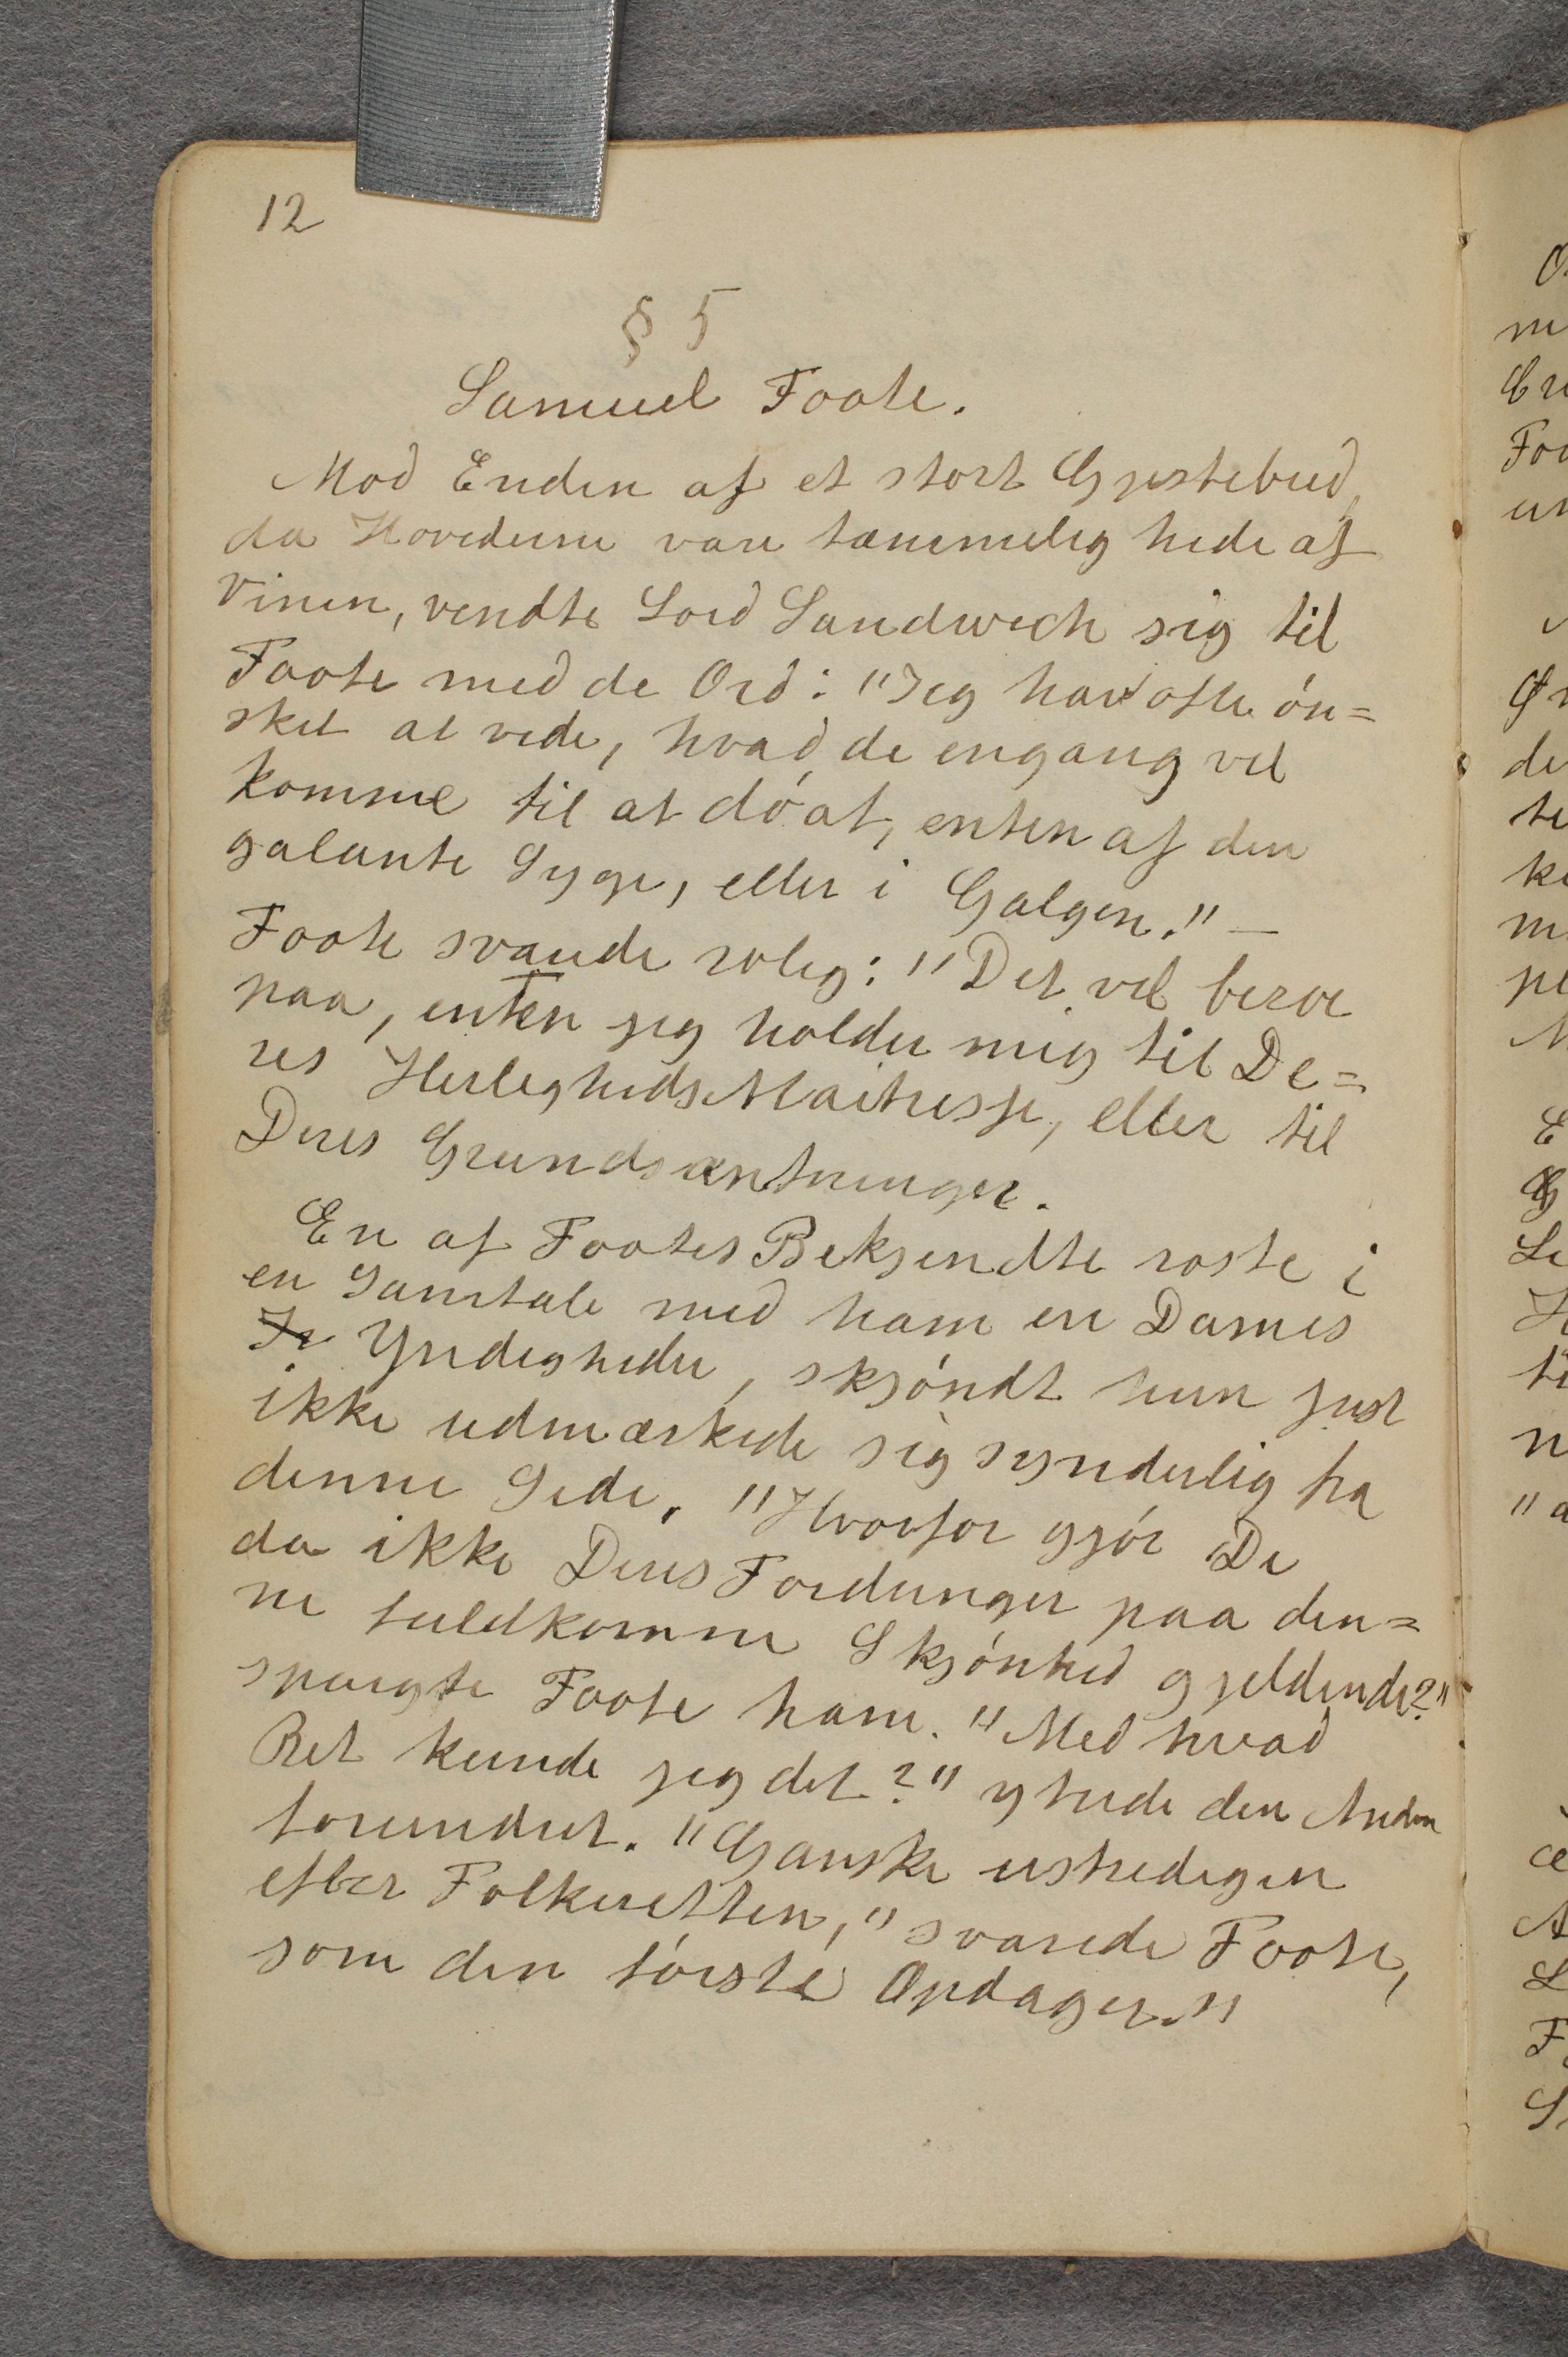 12
§ 5
Samuel Foote.
Mod Enden af et stort Gjestebud,
da Hovederne vare tæmmelig hede af
Vinen, vendte Lord Sandwich sig til
Foote med de Ord: "Jeg har ofte øn=
sket at vide, hvad de engang vil
komme til at dø af, enten af den
galante Syge, eller i Galgen." —
Foote svarede rolig: "Det vil beroe
paa, enten jeg holder mig til De=
res Herligheds Maitresse, eller til
Deres Grundsætninger.
En af Footes Bekjendte roste i
en Samtale med ham en Dames
Yndigheder, skjøndt hun just
ikke udmærkede sig synderlig fra
denne Side. "Hvorfor gjør De
da ikke Deres Fordringer paa den=
ne fuldkomne Skjønhed gjeldende?"
spurgte Foote ham. "Med hvad
Ret kunde jeg det?" ytrede den Anden
forundret. "Ganske ustridigen
efter Folkeretten," svarede Foote,
som den første Opdager."